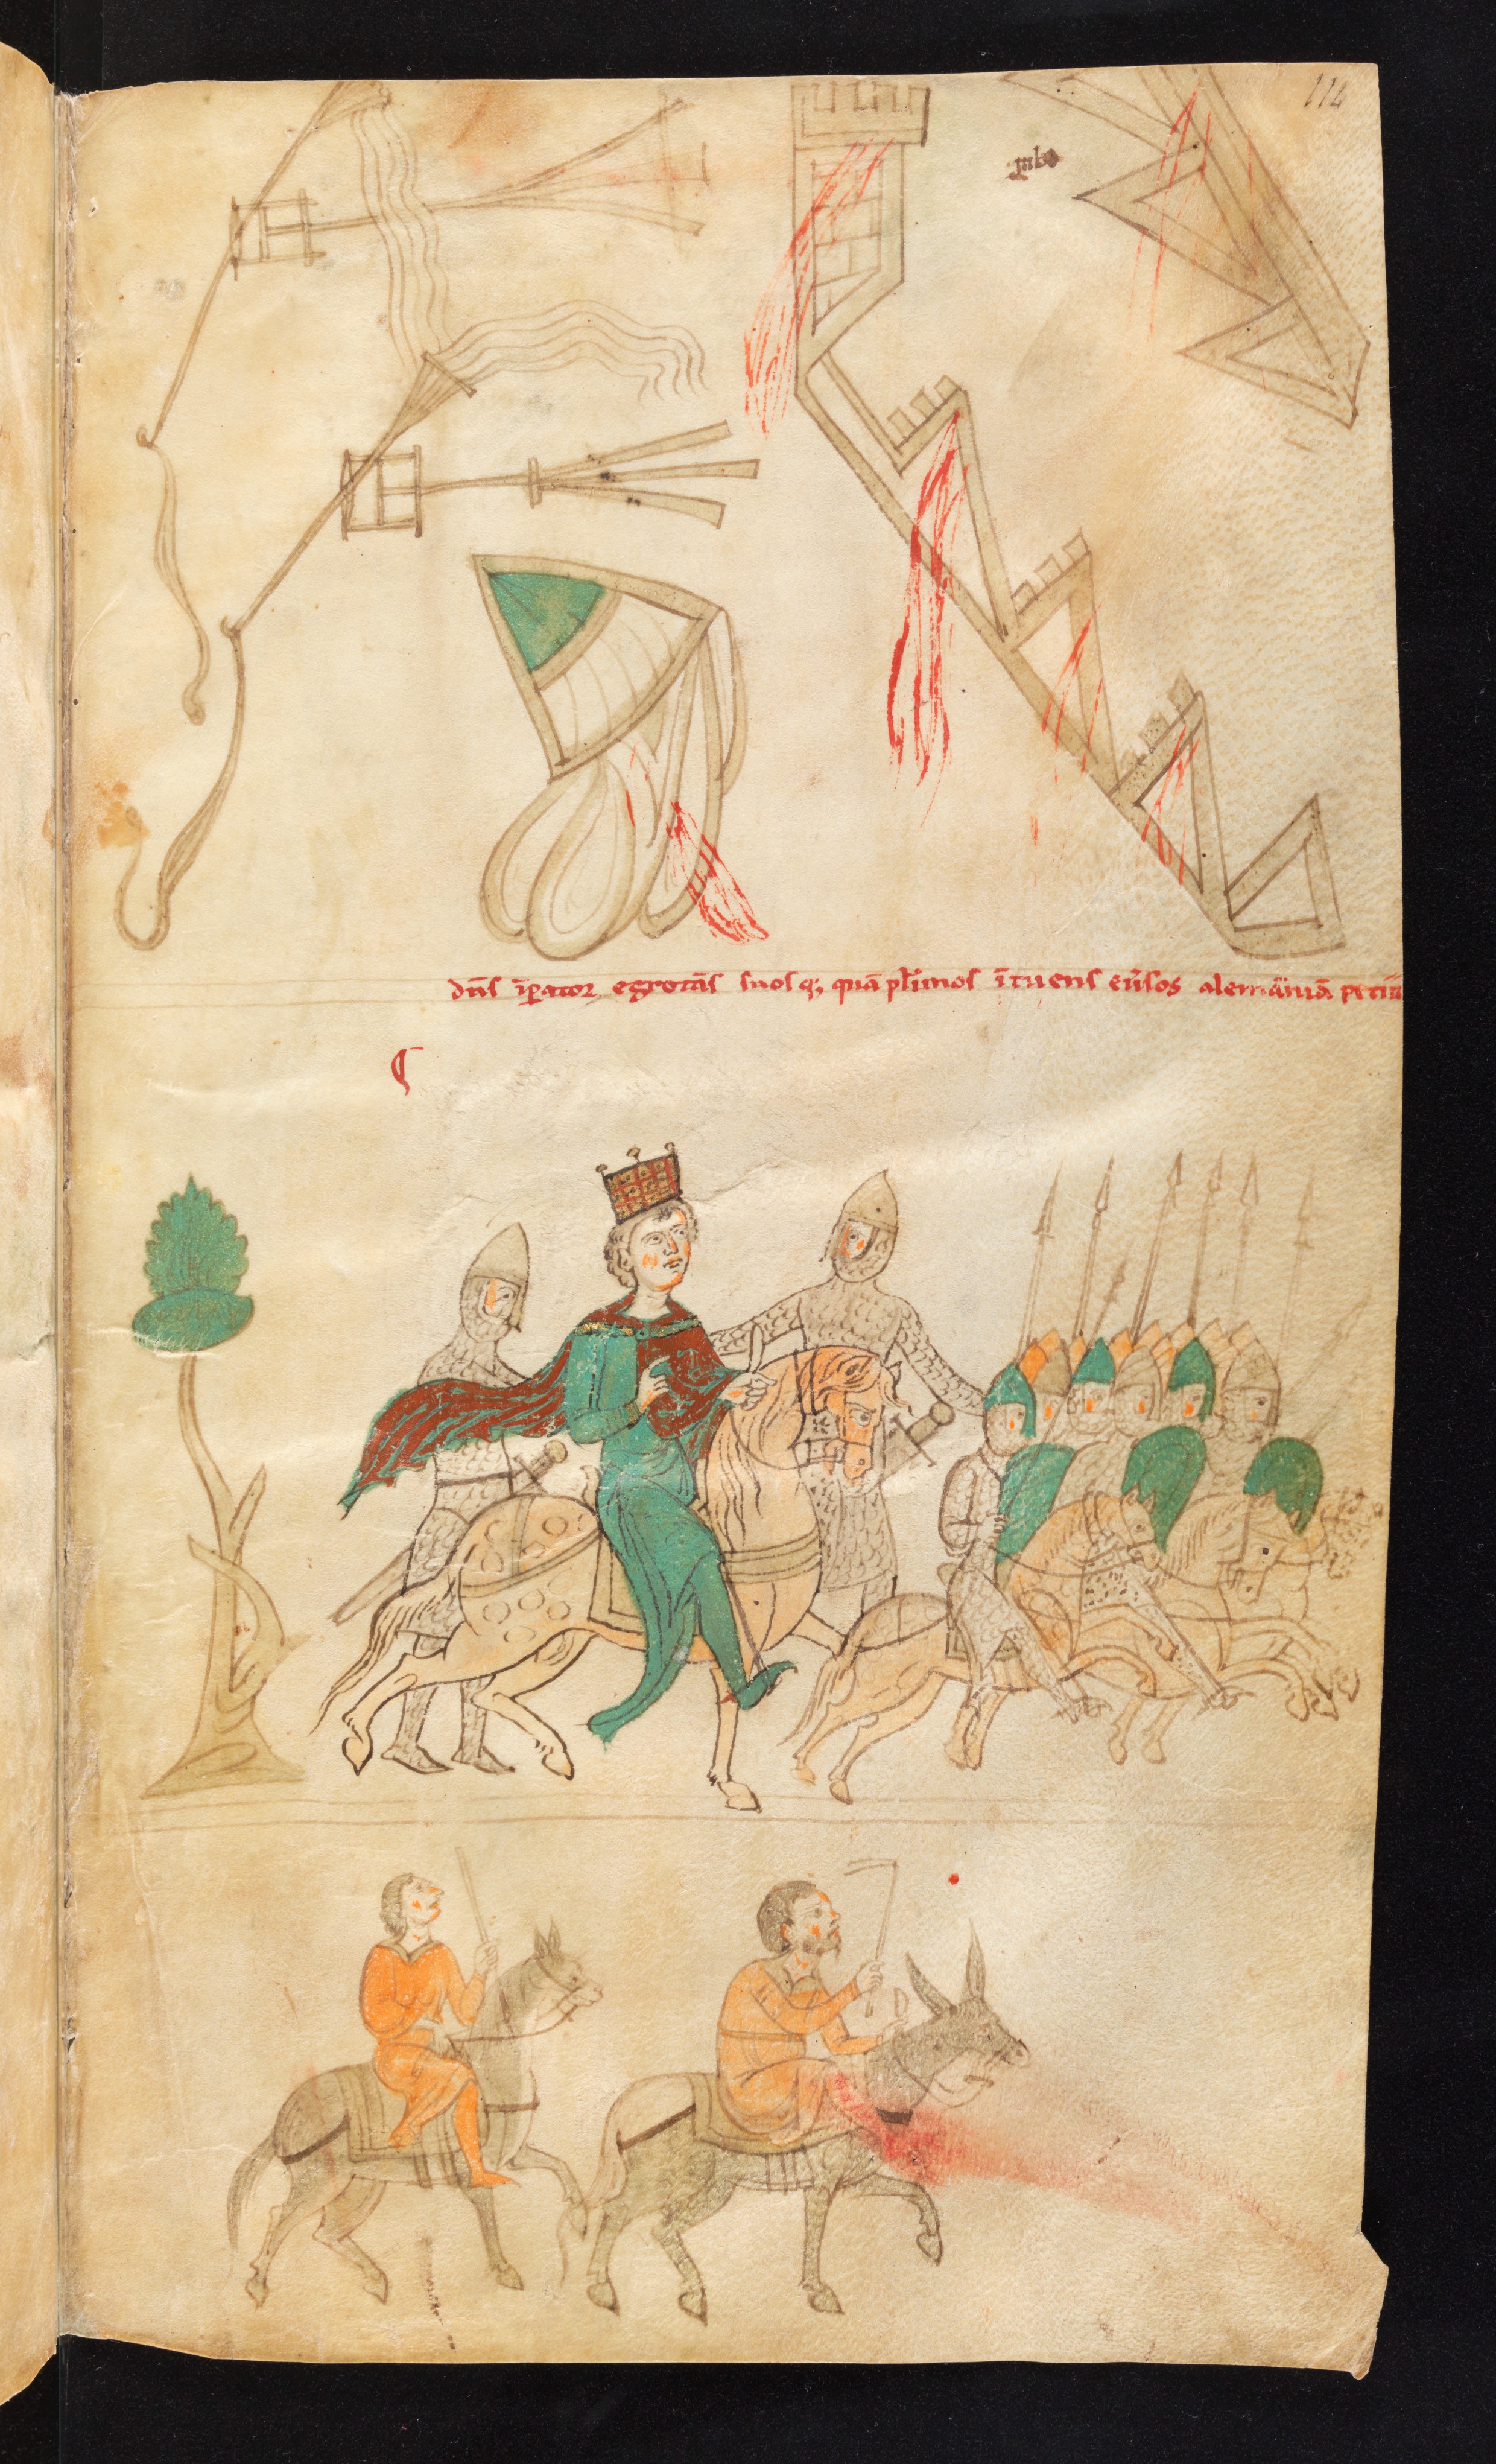 114
dn̄s īp̄ator egrotās suosq; quā plimos ītuens eūsos alemāniā petiit